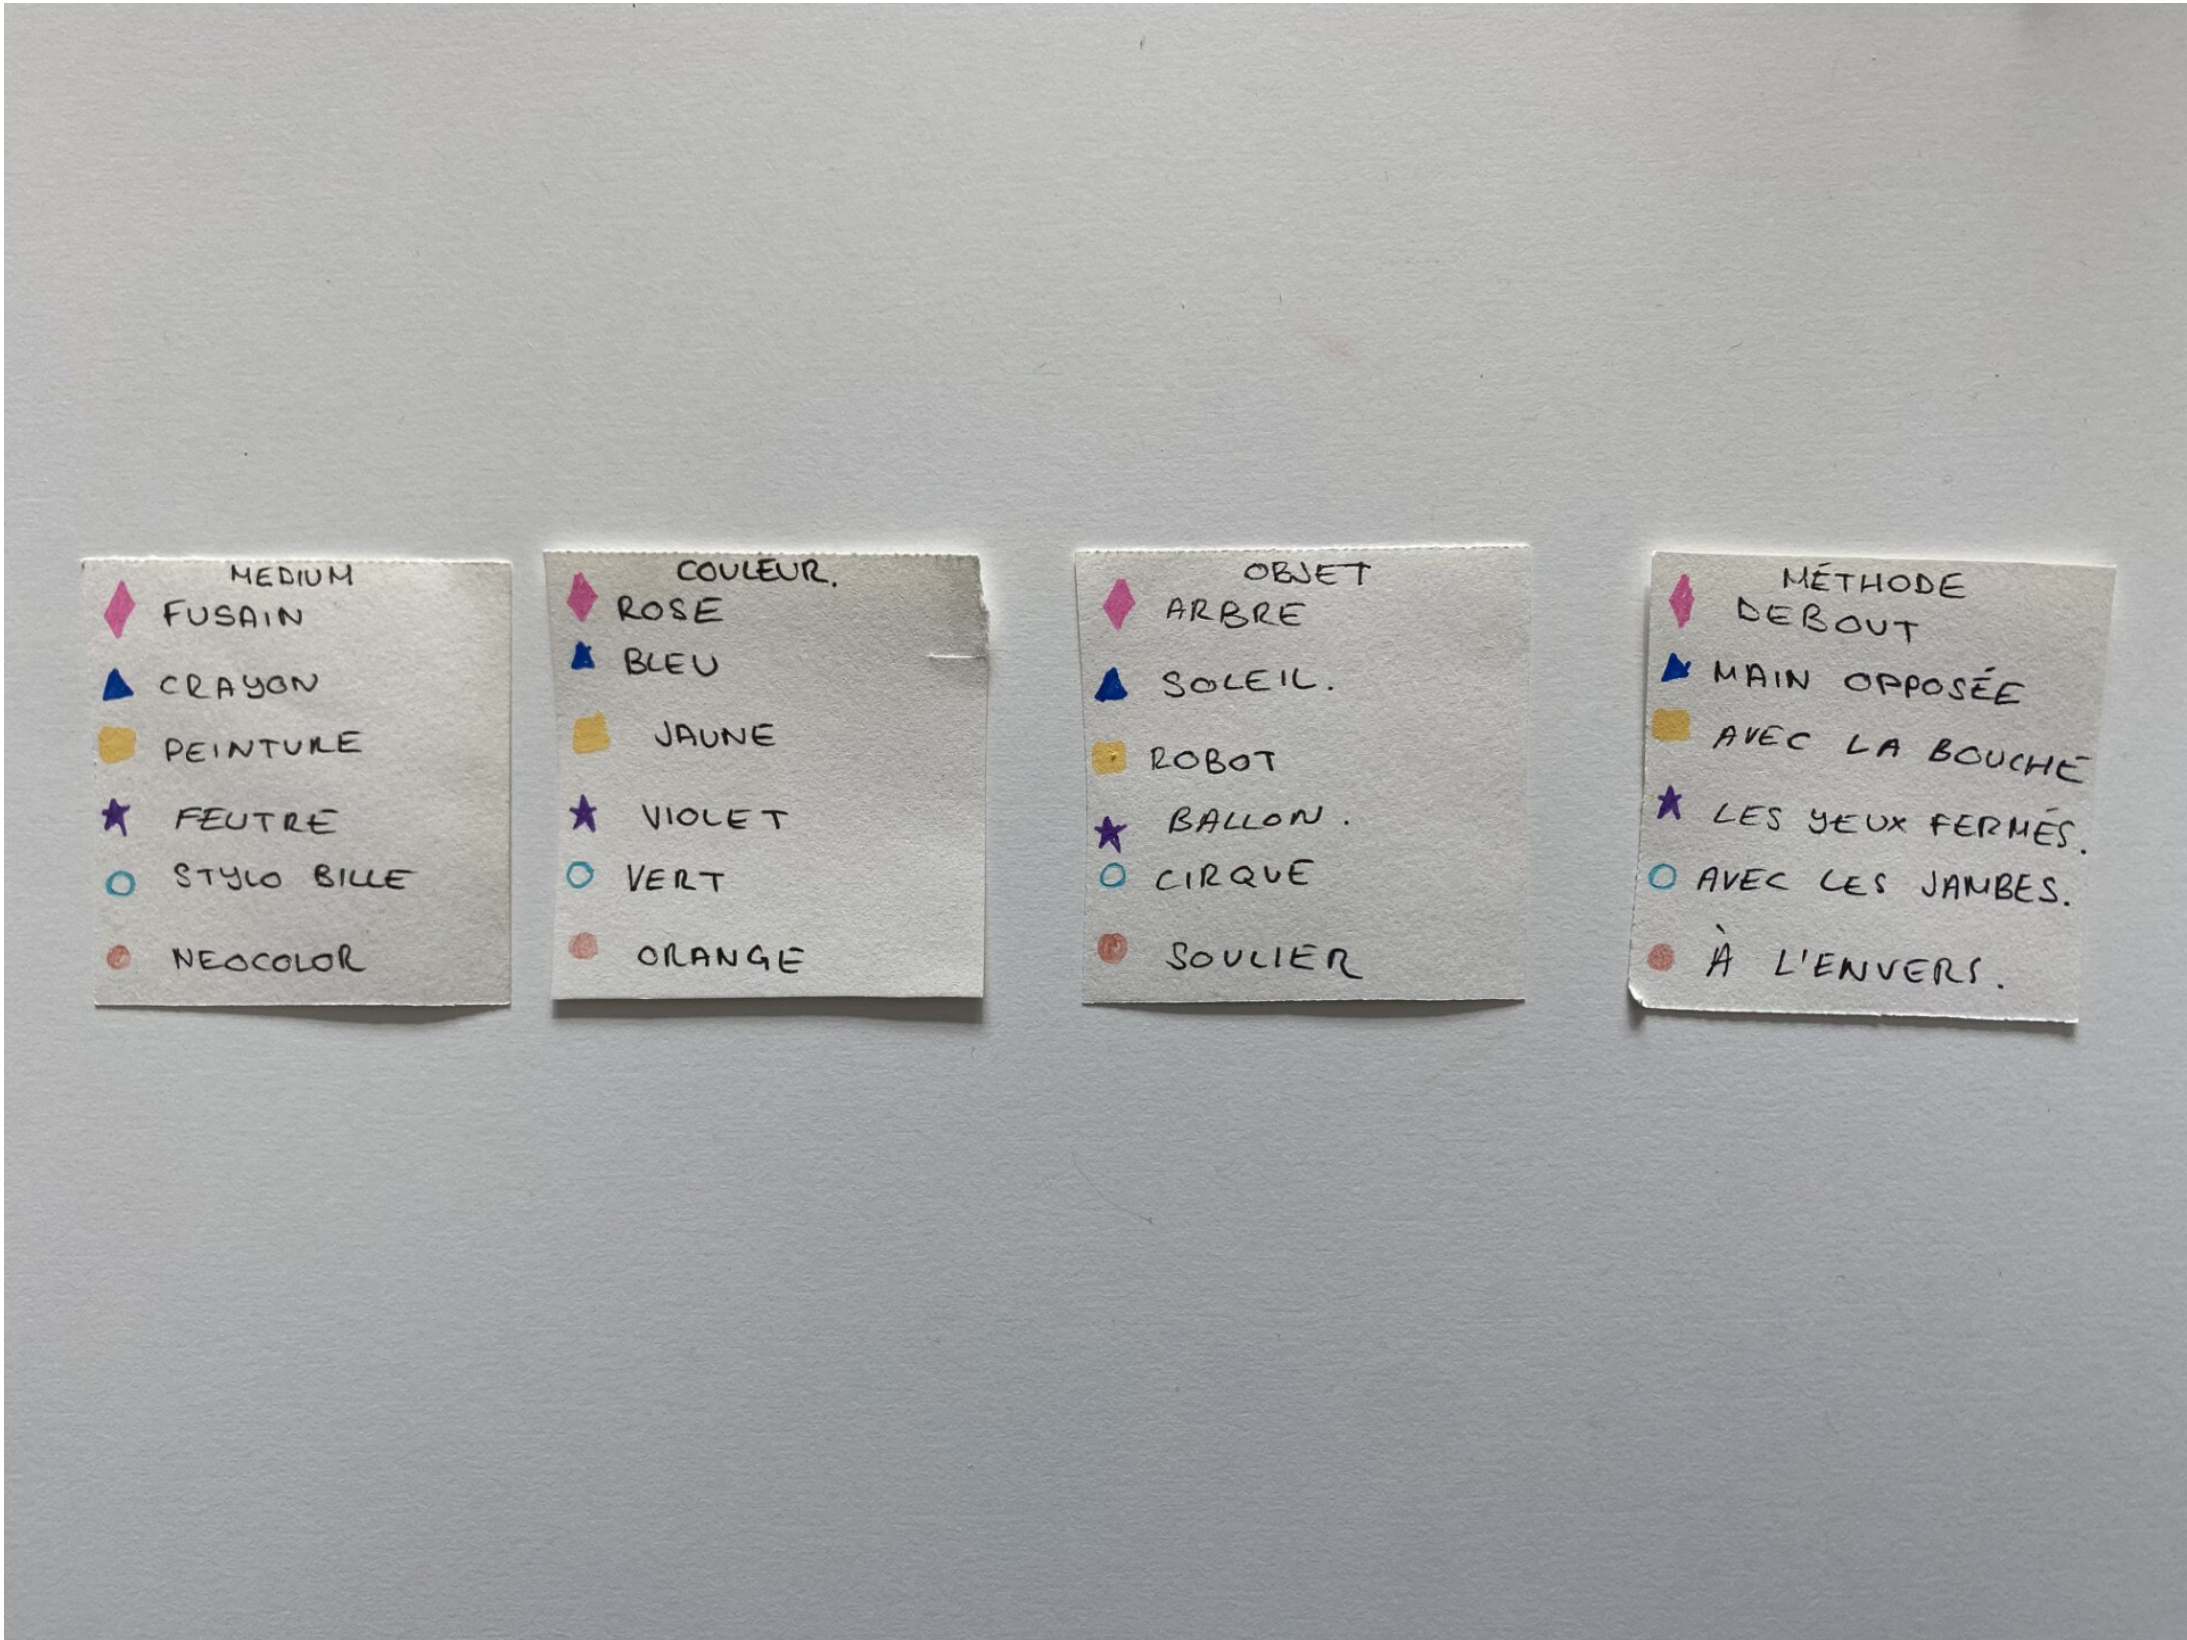 MEDIUM
FUSAIN
CRAYON
PEINTURE
FEUTRE
STYLO BILLE
NEOCOLOR
COULEUR.
ROSE
BLEU
JAUNE
VIOLET
VERT
ORANGE
OBJET
ARBRE
SOLEIL.
ROBOT
BALLON.
CIRQUE
SOULIER
MÉTHODE
DEBOUT
MAIN OPPOSÉE
AVEC LA BOUCHE
LES YEUX FERMÉS.
AVEC LES JAMBES.
À L'ENVERS.